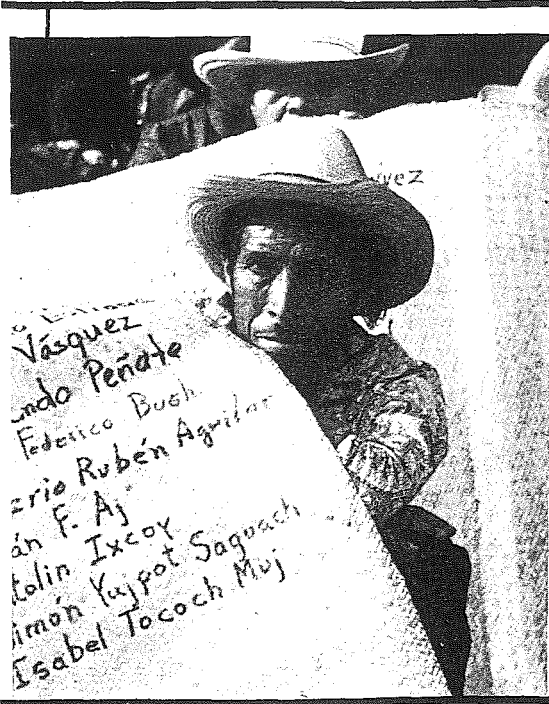 vez
Vásquez
ndo Peñate
Federico Bush
erio Rubén Aguilar
án F. Aj
tolin Ixcoy
imón Yujpot Saquach
Isabel Tococh Muj